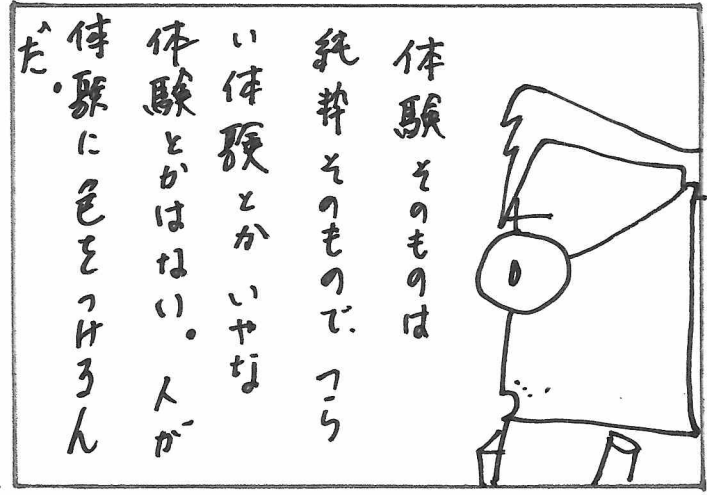 体験そのものは
純粋そのもので、つら
い体験とかいやな
体験とかはない。人が
体験に色をつけるん
だ。